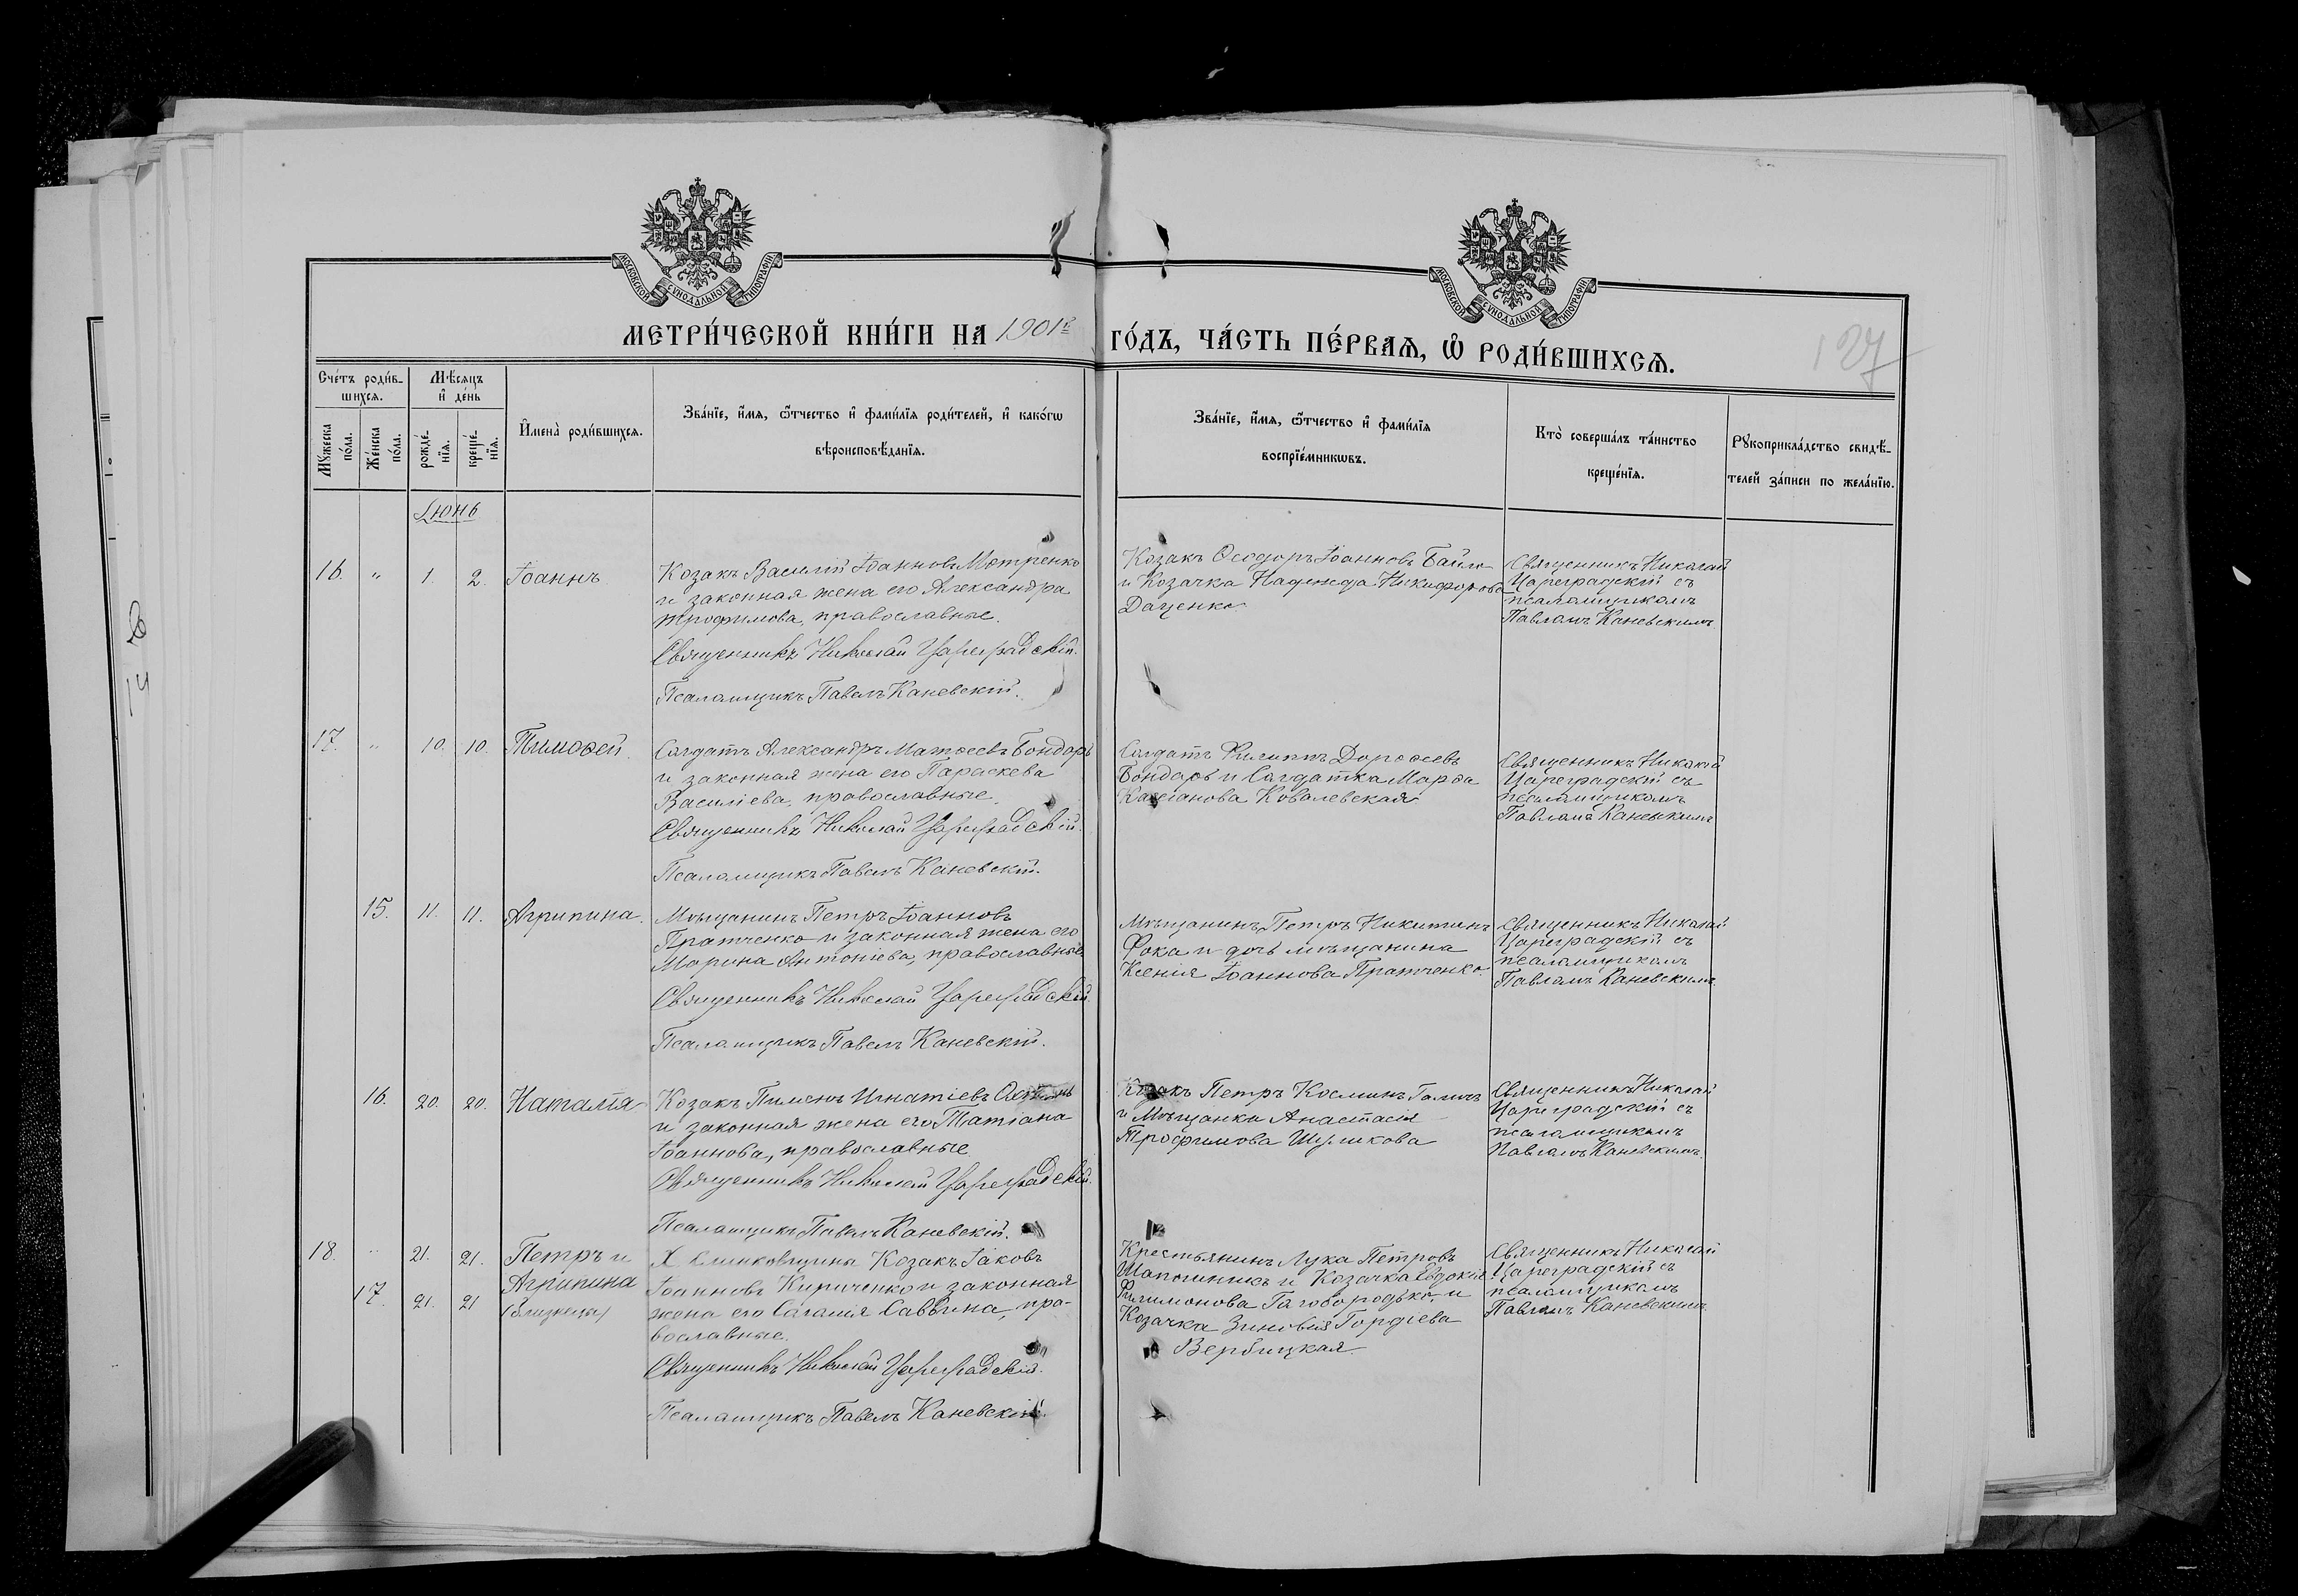 МОСКОВСКОЙ СѴНОДАЛЬНОЙ ТИПОГРАФІИ
МОСКОВСКОЙ СѴНОДАЛЬНОЙ ТИПОГРАФІИ
МЕТРИ́ЧЕСКОЙ КНИ́ГИ НА 1901й ГО́ДЪ, ЧА́СТЬ ПЕ́РВАѦ, Ѡ҆ РОДИ́ВШИХСѦ.
127
Сче́тъ роди́в-
шихсѧ.
Мѣ́сѧцъ
и҆ де́нь
Мꙋ́жеска
по́ла.
Же́нска
по́ла.
рожде́-
нїѧ.
креще́-
нїѧ.
И҆мена̀ роди́вшихсѧ.
Зва́нїе, и҆́мѧ, ѻ҆́тчество и҆ фами́лїѧ роди́телей, и҆ како́гѡ
вѣроисповѣ́данїѧ.
Зва́нїе, и҆́мѧ, ѻ҆́тчество и҆ фами́лїѧ
воспрїе́мникѡвъ.
Кто̀ соверша́лъ та́инство
креще́нїѧ.
Рꙋкоприкла́дство свидѣ́-
телей за́писи по жела́нїю.
Іюнь
16. " 1. 2. Іоаннъ
Козакъ Василій Іоанновъ Мотренко
и законная жена его Александра
Трофимова, православные.
Священникъ Николай Цареградскій.
Псаломщикъ Павелъ Каневскій.
Козакъ Ѳеодоръ Іоанновъ Байло
и Козачка Надежда Никифорова
Даценко
Священникъ Николай
Цареградскій съ
псаломщикомъ
Павломъ Каневскимъ.
17. " 10. 10. Тимоѳей
Солдатъ Александръ Матѳеевъ Бондарь
и законная жена его Параскева
Василіева, православные.
Священникъ Николай Цареградскій.
Псаломщикъ Павелъ Каневскій.
Солдатъ Филиппъ Дороѳеевъ
Бондарь и Солдатка Марѳа
Касіанова Ковалевская
Священникъ Николай
Цареградскій съ
псаломщикомъ
Павломъ Каневскимъ
15. 11. 11. Агрипина.
Мѣщанинъ Петръ Іоанновъ
Пратченко и законная жена его
Марина Антоніева, православные.
Священникъ Николай Цареградскій.
Псаломщикъ Павелъ Каневскій.
Мѣщанинъ Петръ Никитинъ
Фока и дочь мѣщанина
Ксенія Іоаннова Пратченко.
Священникъ Николай
Цареградскій съ
псаломщикомъ
Павломъ Каневскимъ.
16. 20. 20. Наталія
Козакъ Пименъ Игнатіевъ
и законная жена его Татіана
Іоаннова, православные.
Священникъ Николай Цареградскій.
Псаломщикъ Павелъ Каневскій.
Козакъ Петръ Косминъ Галичъ
и Мѣщанка Анастасія
Трофимова Шуликова
Священникъ Николай
Цареградскій съ
псаломщикомъ
Павломъ Каневскимъ.
18. " 21. 21. Петръ и
17. 21. 21 Агрипина
(близнецы)
Х. Климковщины Козакъ Іаковъ
Іоанновъ Кириченко и законная
жена его Саломія Саввина, пра-
вославные.
Священникъ Николай Цареградскій.
Псаломщикъ Павелъ Каневскій.
Крестьянинъ Лука Петровъ
и Козачка Евдокія
Филимонова Голобородько, и
Козачка Зиновія Гордіева
Вербицкая.
Священникъ Николай
Цареградскій съ
псаломщикомъ
Павломъ Каневскимъ